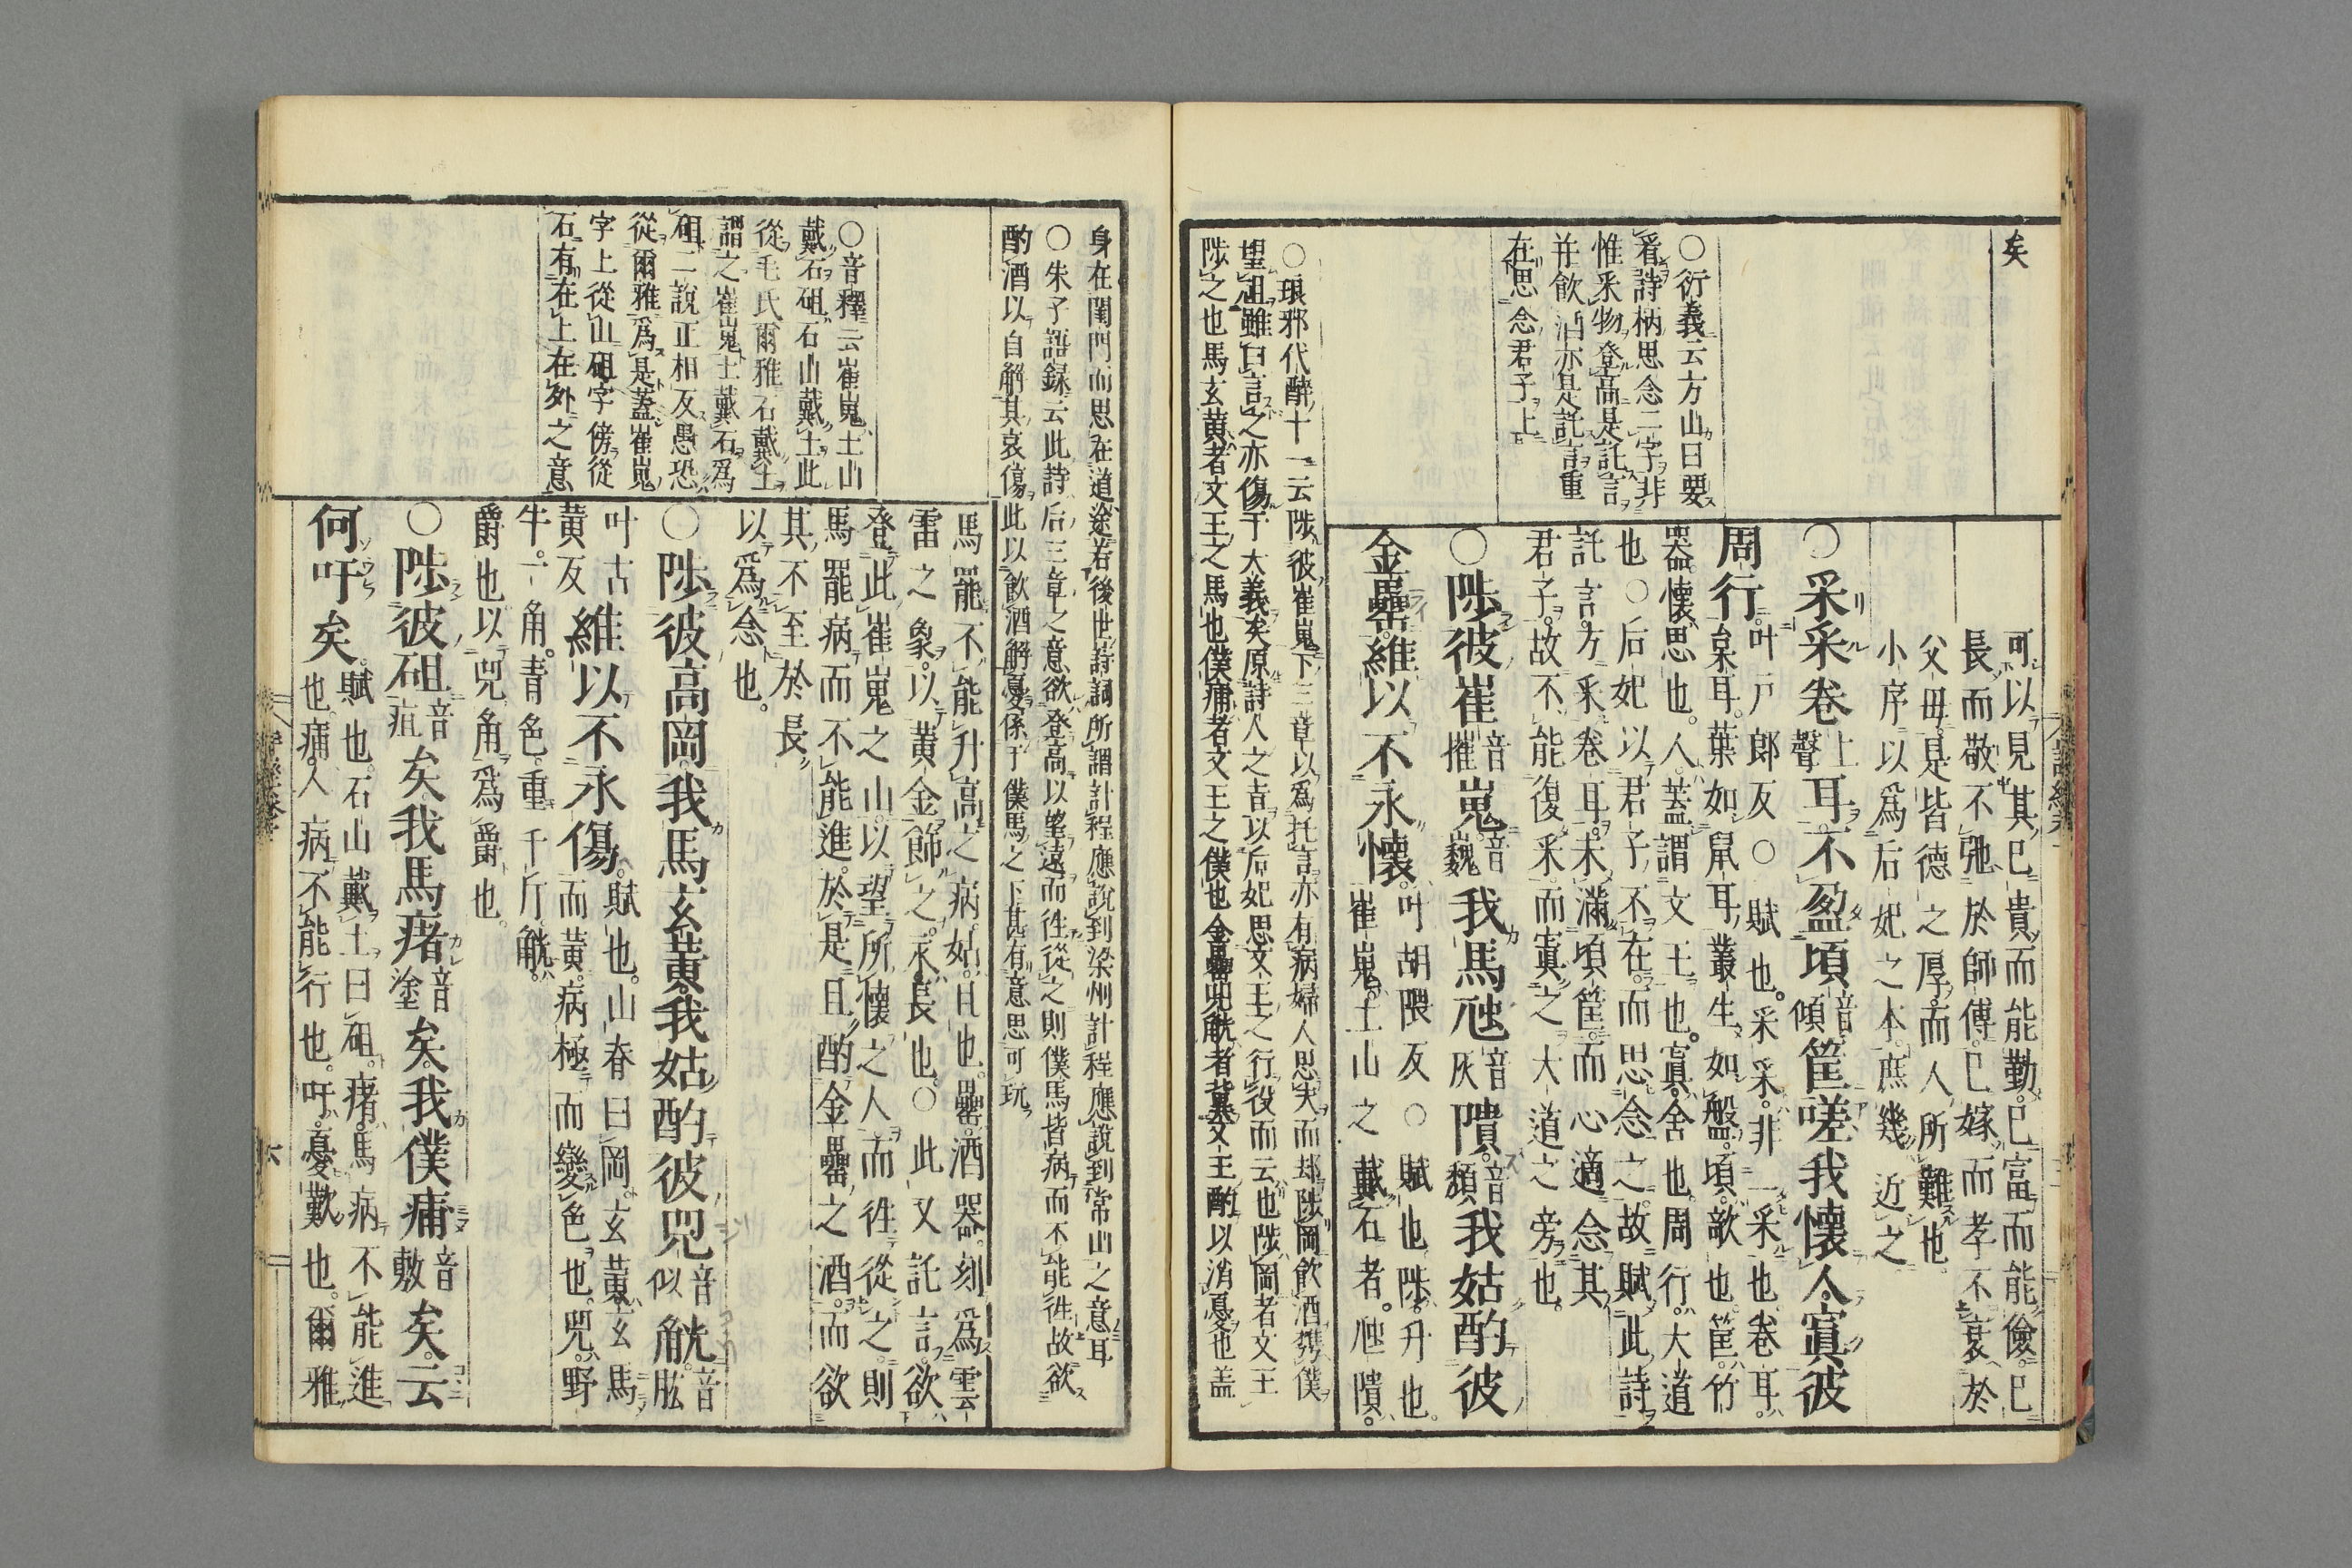 矣
○衍義云方山曰要
看詩柄思念二字非
惟采物登高是託言
幷飲酒亦是託言重
在思念君子上
○琅邪代醉十一云陟彼崔嵬下三章以爲托言亦有病婦人思夫而却陟岡飲酒携僕
望砠雖曰言之亦傷于大義矣原詩人之旨以后妃思文王之行役而云也陟岡者文王
陟之也馬玄黃者文王之馬也僕痡者文王之僕也金罍兕觥者冀文王酌以消憂也盖
可以見其已貴而能勤已富而能儉已
長而敬不弛於師傅已嫁而孝不衰於
父母是皆德之厚而人所難也
小序以爲后妃之本庶幾近之
○采采卷上聲耳不盈頃音傾筐嗟我懷人寘彼
周行叶戸郎反○賦也采采非一采也卷耳
枲耳葉如鼠耳叢生如盤頃欹也筐竹
器懷思也人蓋謂文王也寘舍也周行大道
也○后妃以君子不在而思念之故賦此詩
託言方采卷耳未滿頃筐而心適念其
君子故不能復采而寘之大道之旁也
○陟彼崔音摧嵬音巍我馬虺音灰隤音頹我姑酌彼
金罍維以不永懷叶胡隈反○賦也陟升也
崔嵬土山之戴石者虺隤
身在閨門而思在道途若後世詩詞所謂計程應說到梁州計程應說到常山之意耳
○朱子語錄云此詩后三章之意欲登高以望遠而徃從之則僕馬皆病而不能徃故欲
酌酒以自解其哀傷此以飮酒解憂係于僕馬之下甚有意思可玩
○音釋云崔嵬土山
戴石砠石山戴土此
從毛氏爾雅石戴土
謂之崔嵬土戴石爲
砠二說正相反愚恐
從爾雅爲是蓋崔嵬
字上從山砠字傍從
石有在上在外之意
馬罷不能升高之病姑且也罍酒器刻爲雲
雷之象以黃金飾之永長也○此又託言欲
登此崔嵬之山以望所懷之人而徃從之則
馬罷病而不能進於是且酌金罍之酒而欲
其不至於長
以爲念也
○陟彼高岡我馬玄黃我姑酌彼兕音似觥音肱
叶古黃反維以不永傷賦也山脊曰岡玄黃玄馬
而黃病極而變色也兕野
牛一角青色重千斤觥
爵也以兕角爲爵也
○陟彼砠音疽矣我馬瘏音塗矣我僕痡音敷矣云
何吁矣賦也石山戴土曰砠瘏馬病不能進
也痡人病不能行也吁憂歎也爾雅
六